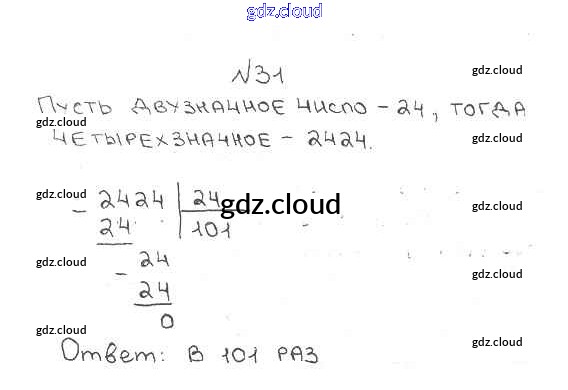 gdz.cloud
№31
gdz.cloud
Пусть двузначное число - 24, тогда
gdz.cloud
четырехзначное - 2424.
gdz.cloud
- 2424 | 24
gdz.cloud
gdz.cloud
24 | 101
gdz.cloud
- 24
gdz.cloud
24
0
gdz.cloud
gdz.cloud
Ответ: в 101 раз